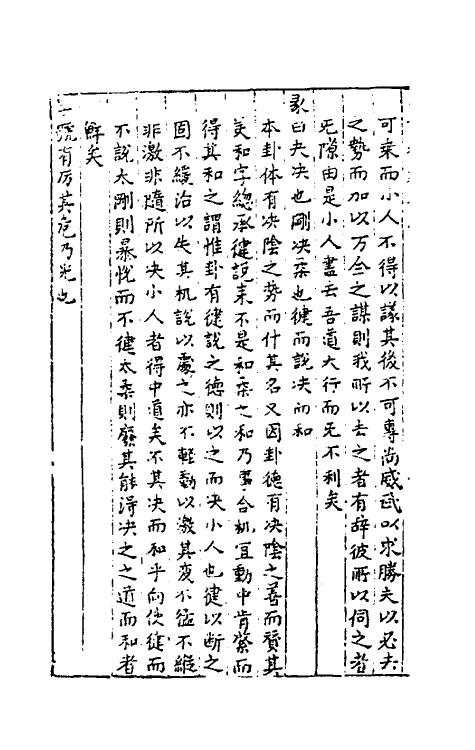 可乗而小人不得以議其後不可専尚威武以求勝夫以必夬
之勢而加以万全之謀則我所以去之者有辞彼所以伺之者
无隙由是小人盡去吾道大行而无不利矣
彖曰夬决也剛决柔也健而説决而和
本卦体有决陰之勢而什其名又因卦徳有决陰之善而賛其
美和字緫承健説来不是和柔之和乃事合机宜動中肯綮而
得其和之謂惟卦有健説之徳則以之而决小人也健以断之
固不緩治以失其机説以處之亦不輕動以激其変不猛不縱
非激非随所以决小人者得中道矣不其决而和乎向使健而
不説太剛則暴悦而不健太柔則廢其能淂决之之道而和者
鮮矣
号有厉其危乃光也